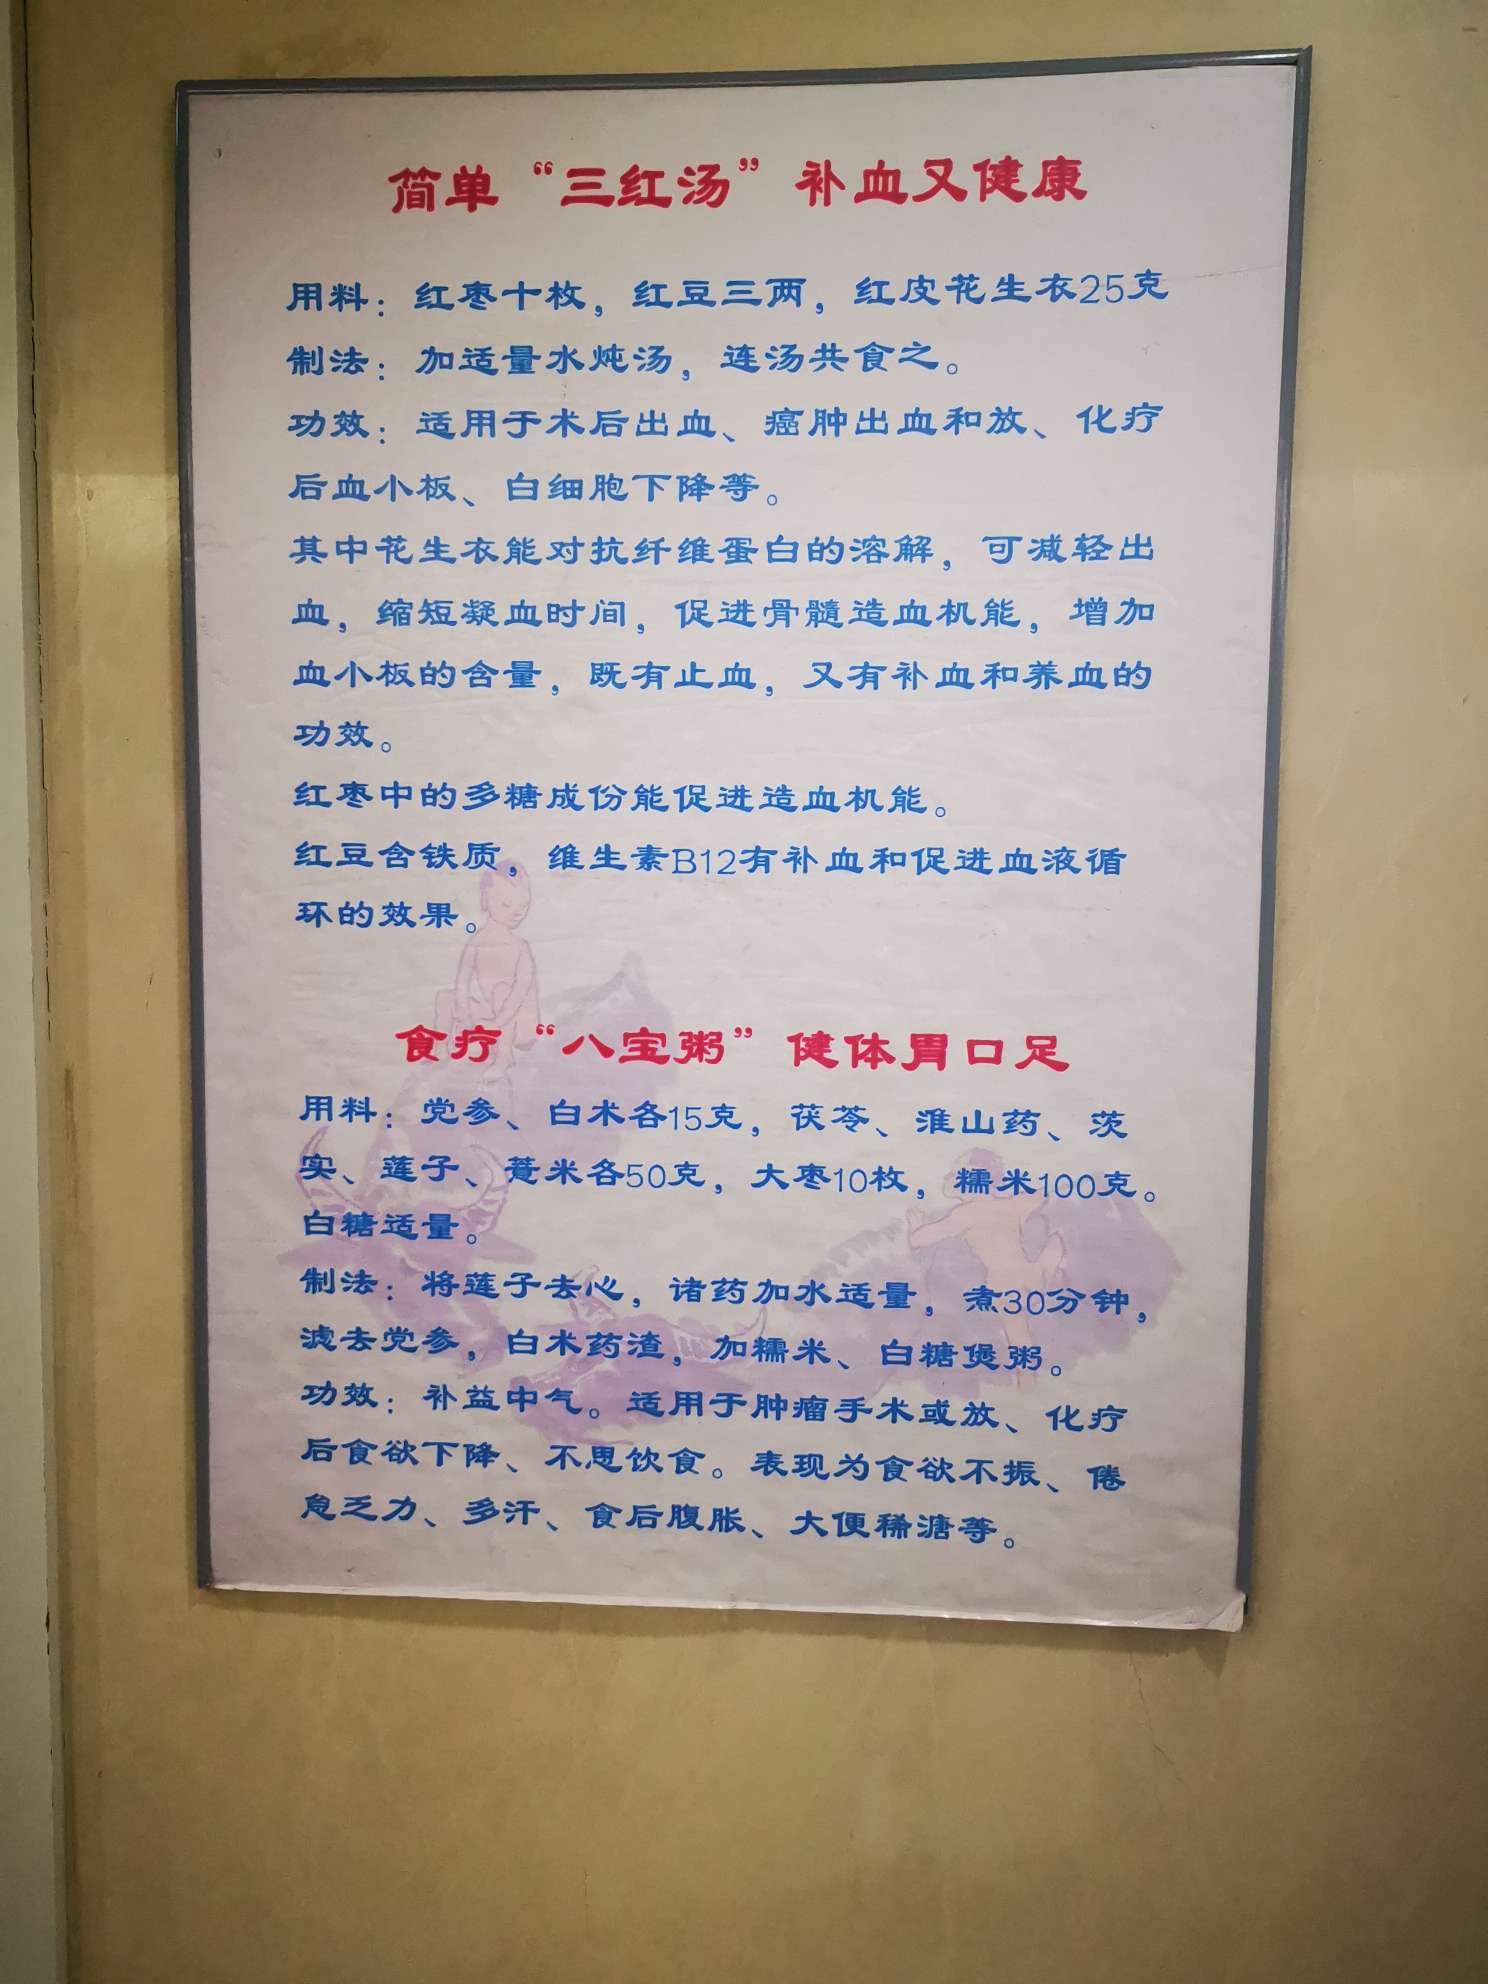 简单“三红汤”补血又健康
用料：红枣十枚，红豆三两，红皮花生衣25克
制法：加适量水炖汤，连汤共食之。
功效：适用于术后出血、癌肿出血和放、化疗
后血小板、白细胞下降等。
其中花生衣能对抗纤维蛋白的溶解，可减轻出
血，缩短凝血时间，促进骨髓造血机能，增加
血小板的含量，既有止血，又有补血和养血的
功效。
红枣中的多糖成份能促进造血机能。
红豆含铁质，维生素B12有补血和促进血液循
环的效果。
食疗“八宝粥”健体胃口足
用料：党参、白术各15克，茯苓、淮山药、茨
实、莲子、薏米各50克，大枣10枚，糯米100克。
白糖适量。
制法：将莲子去心，诸药加水适量，煮30分钟，
滤去党参，白术药渣，加糯米、白糖煲粥。
功效：补益中气。适用于肿瘤手术或放、化疗
后食欲下降、不思饮食。表现为食欲不振、倦
怠乏力、多汗、食后腹胀、大便稀溏等。